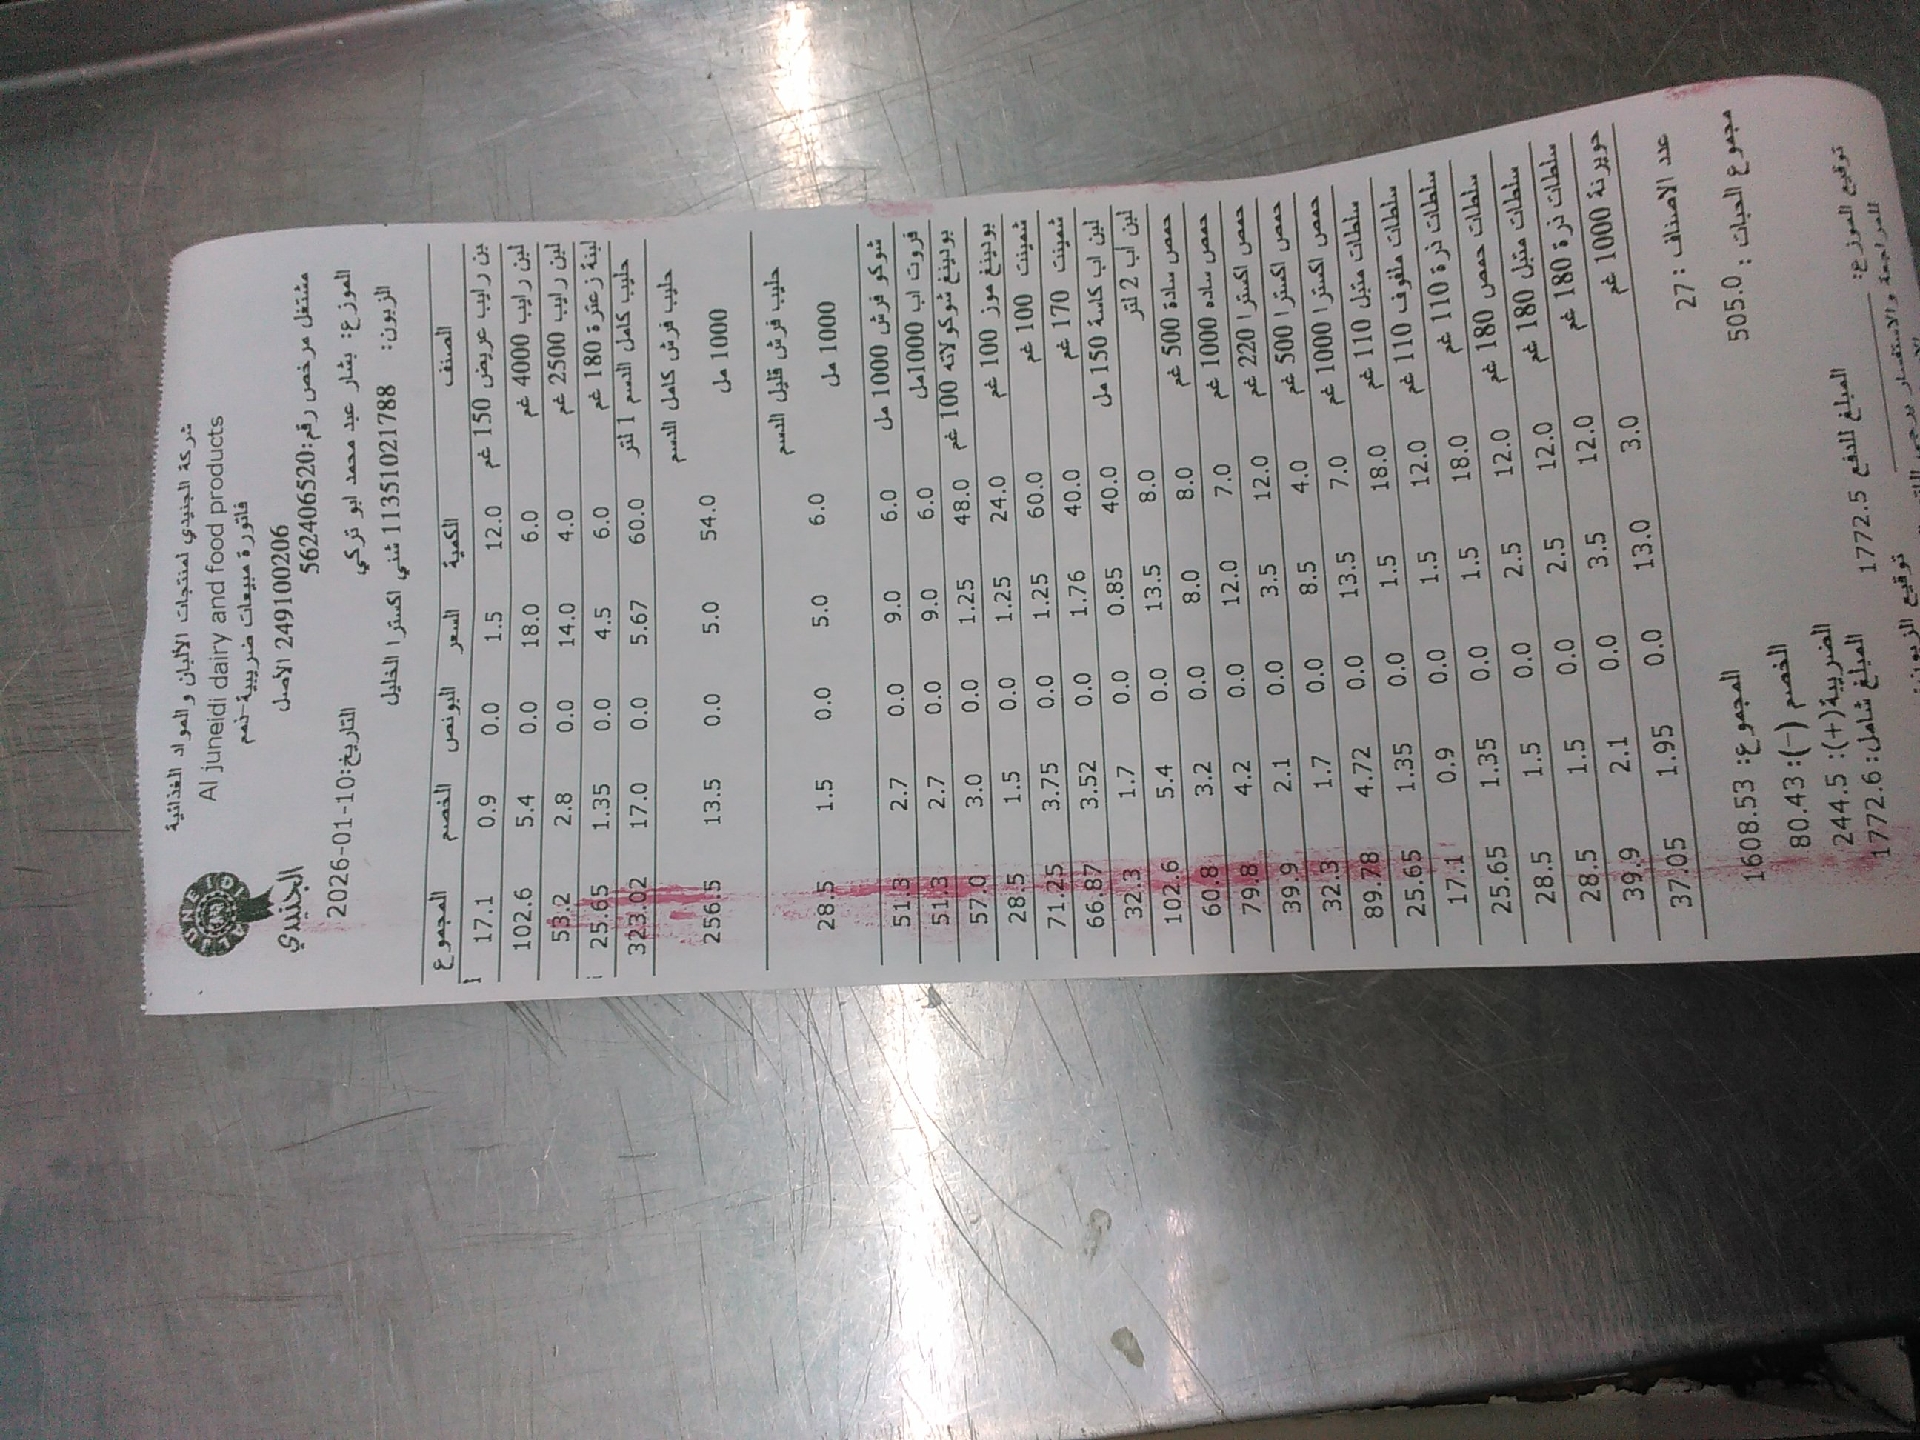 شركة الجنيدي لمنتجات الألبان والمواد الغذائية
Al juneidi dairy and food products
فاتورة مبيعات ضريبية-نمم
الجنيدي
249100206 الاصل
مشتغل مرخص رقم:562406520
التاريخ:2026-01-10
الموزع: بشار عبد محمد ابو تركي
الزبون: 11351021788 شني اكسترا الخليل
الصنف الكمية السعر البونص الخصم المجموع
بن رايب عريض 150 غم 12.0 1.5 0.0 0.9 17.1
لبن رايب 4000 غم 6.0 18.0 0.0 5.4 102.6
لبن رايب 2500 غم 4.0 14.0 0.0 2.8 53.2
لبنة زعترة 180 غم 6.0 4.5 0.0 1.35 25.65
حليب كامل الدسم 1 لتر 60.0 5.67 0.0 17.0 323.02
حليب فرش كامل الدسم
1000 مل 54.0 5.0 0.0 13.5 256.5
حليب فرش قليل الدسم
1000 مل 6.0 5.0 0.0 1.5 28.5
شوكو فرش 1000 مل 6.0 9.0 0.0 2.7 51.3
فروت اب 1000مل 6.0 9.0 0.0 2.7 51.3
بودينغ شوكولاته 100 غم 48.0 1.25 0.0 3.0 57.0
بودينغ موز 100 غم 24.0 1.25 0.0 1.5 28.5
شمينت 100 غم 60.0 1.25 0.0 3.75 71.25
شمينت 170 غم 40.0 1.76 0.0 3.52 66.87
لبن اب كاسة 150 مل 40.0 0.85 0.0 1.7 32.3
لبن اب 2 لتر 8.0 13.5 0.0 5.4 102.6
حمص سادة 500 غم 8.0 8.0 0.0 3.2 60.8
حمص ساده 1000 غم 7.0 12.0 0.0 4.2 79.8
حمص اكسترا 220 غم 12.0 3.5 0.0 2.1 39.9
حمص اكسترا 500 غم 4.0 8.5 0.0 1.7 32.3
حمص اكسترا 1000 غم 7.0 13.5 0.0 4.72 89.78
سلطات متبل 110 غم 18.0 1.5 0.0 1.35 25.65
سلطات ملفوف 110 غم 12.0 1.5 0.0 0.9 17.1
سلطات ذرة 110 غم 18.0 1.5 0.0 1.35 25.65
سلطات حمص 180 غم 12.0 2.5 0.0 1.5 28.5
سلطات متبل 180 غم 12.0 2.5 0.0 1.5 28.5
سلطات ذرة 180 غم 12.0 3.5 0.0 2.1 39.9
حويرنة 1000 غم 3.0 13.0 0.0 1.95 37.05
عدد الاصناف : 27
مجموع الحبات : 505.0
المجموع: 1608.53
الخصم (-): 80.43
الضريبة(+): 244.5
المبلغ شامل: 1772.6
المبلغ للدفع 1772.5
توقيع الموزع:
توقيع الزبون:
للمراجعة والاستفسار